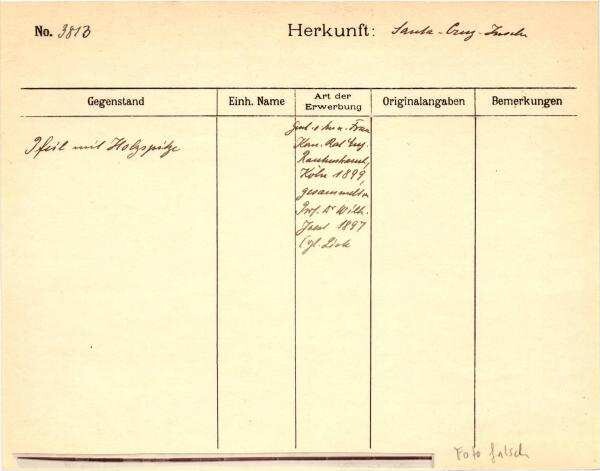 No. 3813 Herkunft: Santa-Cruz-Inseln
Gegenstand Einh. Name Art der Erwerbung Originalangaben Bemerkungen
Pfeil mit Holzspitze
u. Frau
Kom. Rat Eug.
Rautenstrauch,
Köln 1899,
gesammelt v.
Prof. Dr Wilh.
Joest 1897
Foto falsch